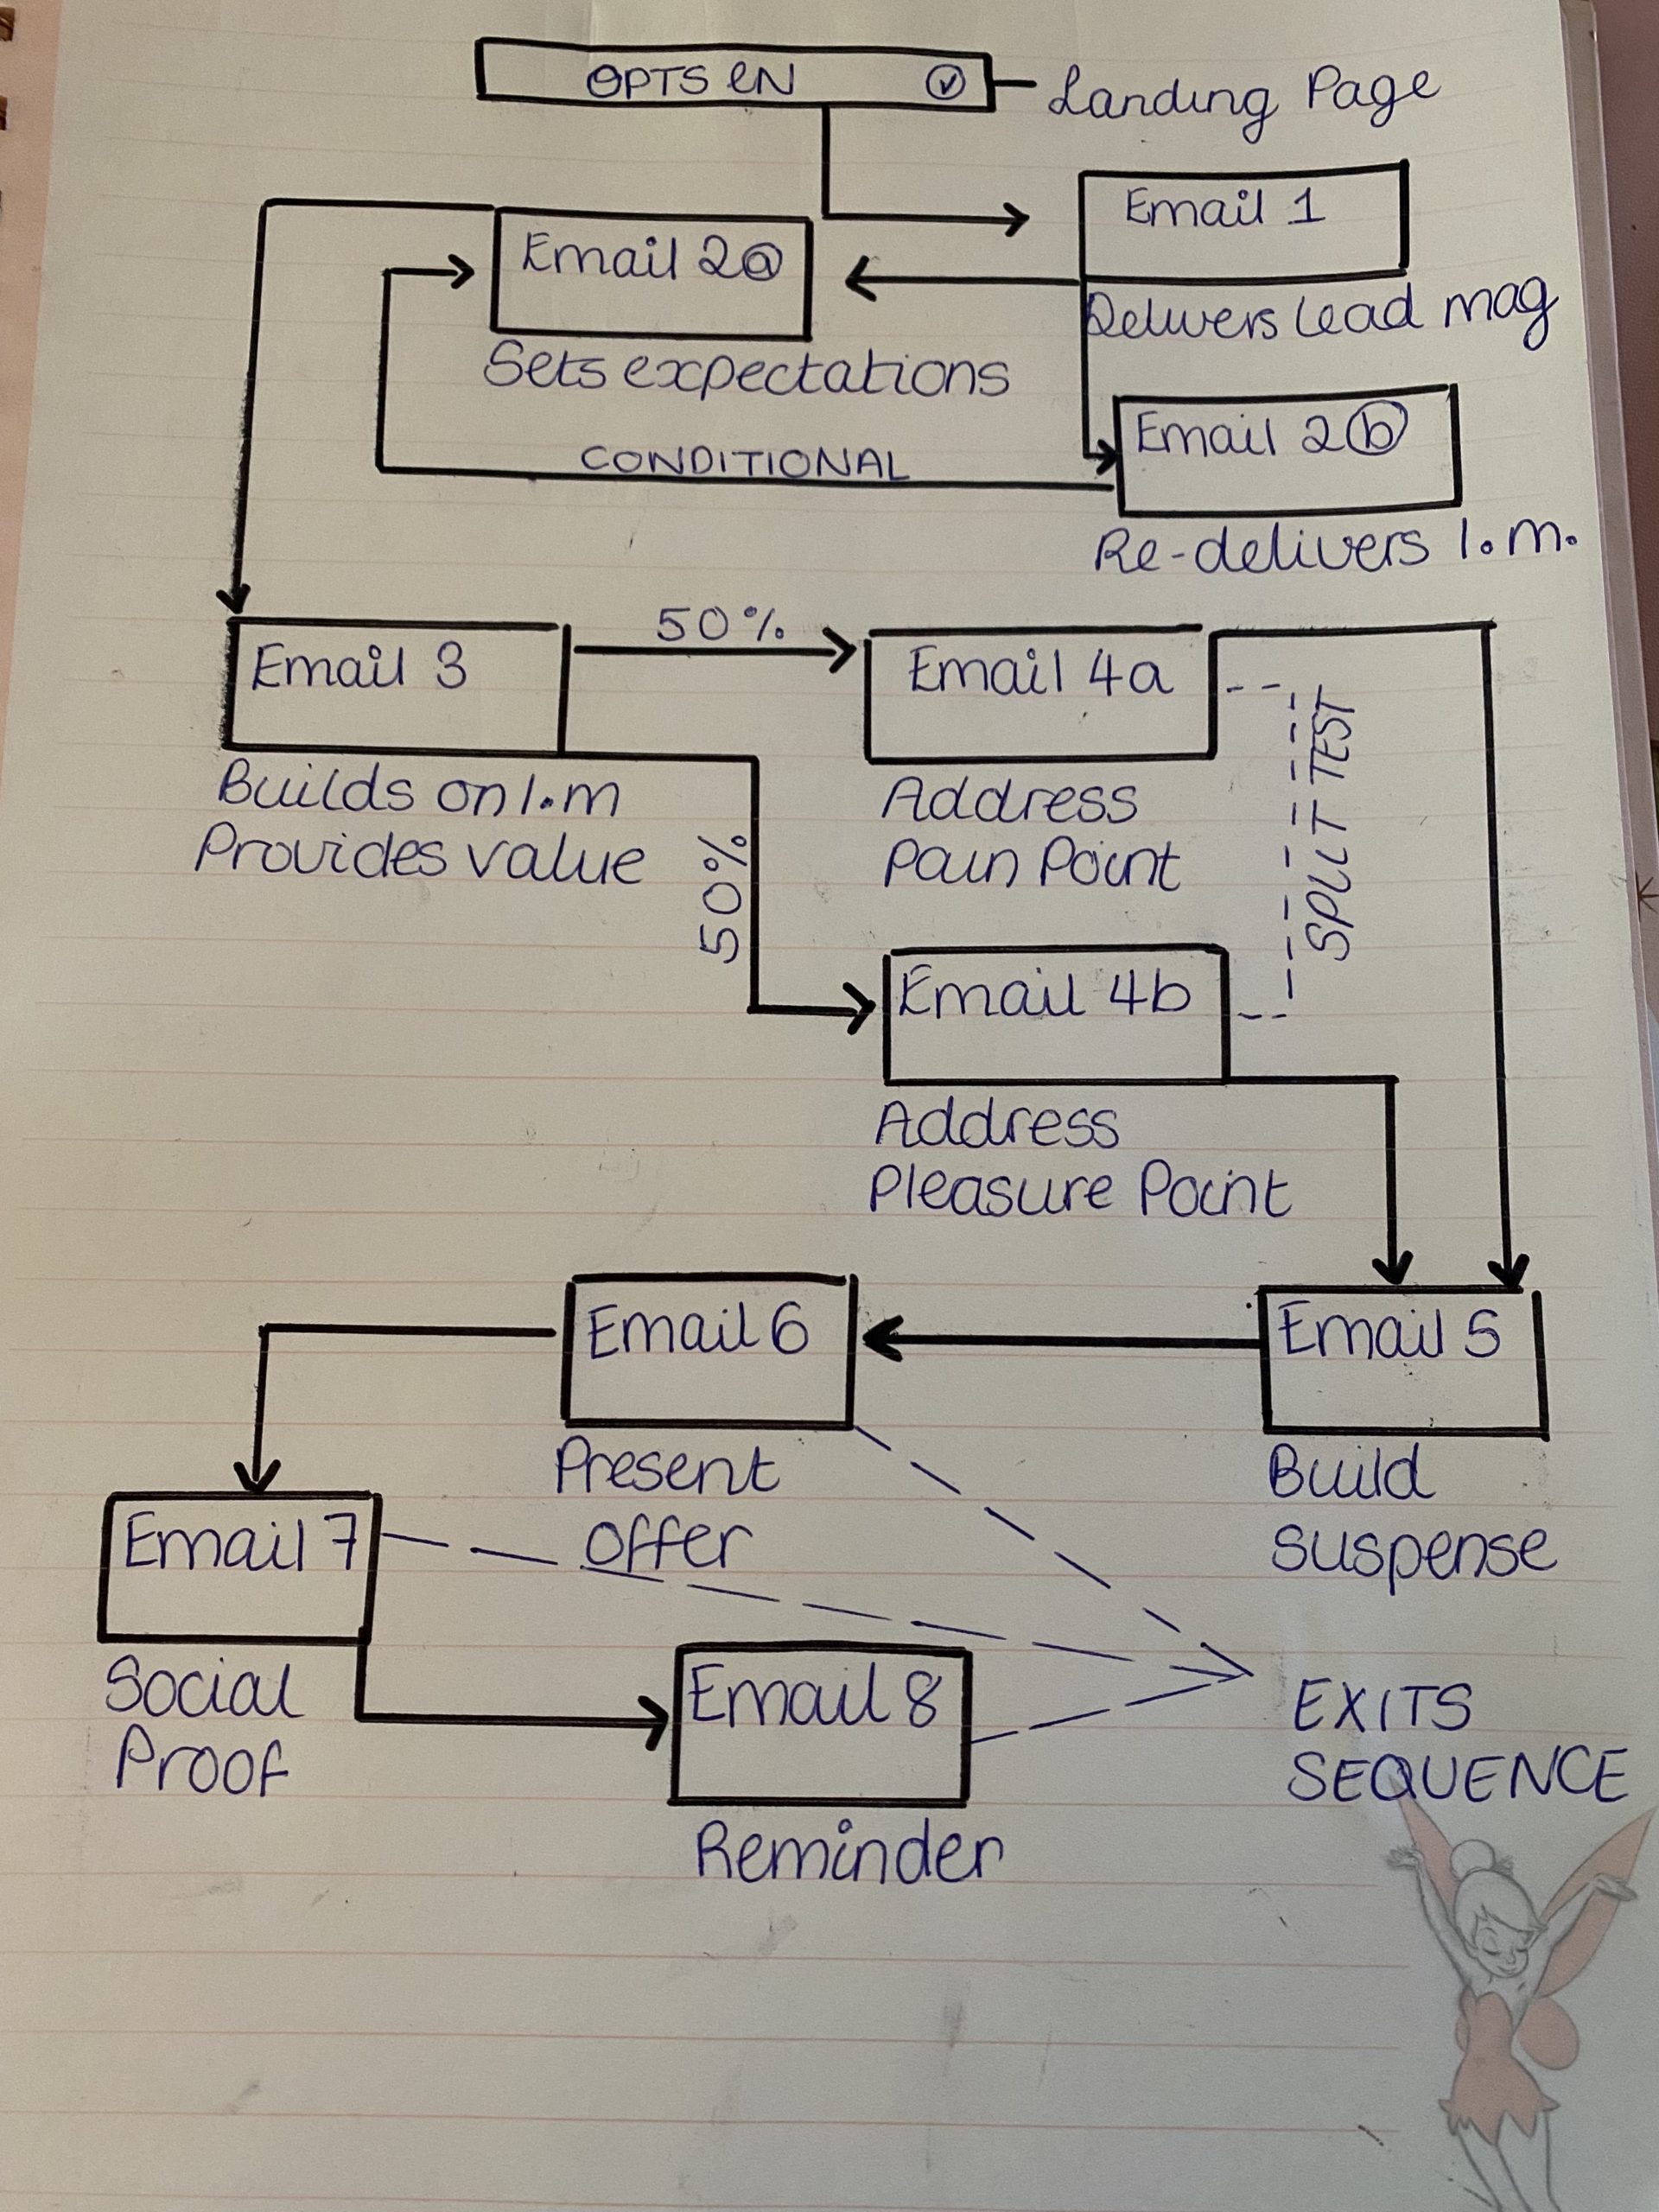 OPTS IN
Landing Page
Email 1
Delivers lead mag
Email 2a
Sets expectations
Email 2b
Re-delivers l.m.
CONDITIONAL
Email 3
Builds on l.m
Provides value
50%
50%
Email 4a
Address
Pain Point
SPLIT TEST
Email 4b
Address
Pleasure Point
Email 5
Build
suspense
Email 6
Present
offer
Email 7
Social
Proof
Email 8
Reminder
EXITS
SEQUENCE